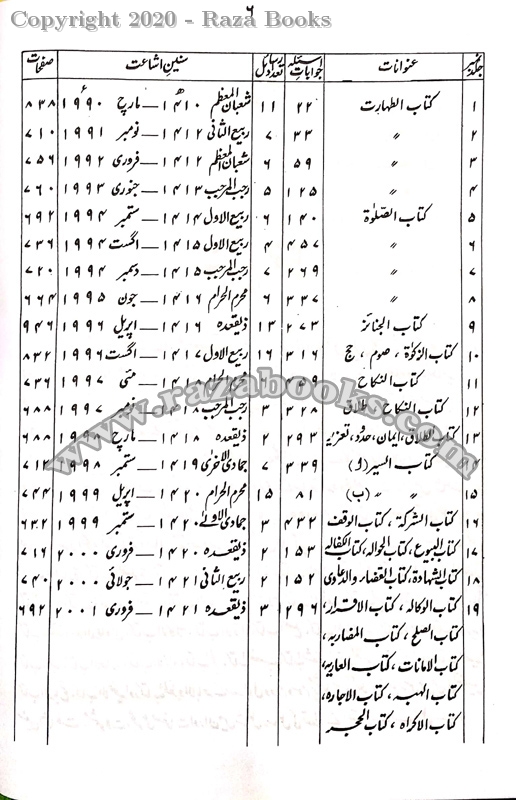 Copyright 2020 - Raza Books
۶
نمبر جلد عنوانات اسئلہ جوابات تعداد رسائل سنین اشاعت صفحات
۱ کتاب الطہارت ۲۲ ۱۱ شعبان المعظم ۱۴۱۰ھ — مارچ ۱۹۹۰ء ۸۳۸
۲ 〃 ۳۳ ۷ ربیع الثانی ۱۴۱۲ — نومبر ۱۹۹۱ ۷۱۰
۳ 〃 ۵۹ ۶ شعبان المعظم ۱۴۱۲ — فروری ۱۹۹۲ ۷۵۶
۴ 〃 ۱۲۵ ۵ رجب المرجب ۱۴۱۳ — جنوری ۱۹۹۳ ۷۶۰
۵ کتاب الصلوٰۃ ۱۴۰ ۶ ربیع الاول ۱۴۱۴ — ستمبر ۱۹۹۴ ۶۹۲
۶ 〃 ۴۵۷ ۴ ربیع الاول ۱۴۱۵ — اگست ۱۹۹۴ ۷۳۶
۷ 〃 ۲۶۹ ۷ رجب المرجب ۱۴۱۵ — دسمبر ۱۹۹۴ ۷۲۰
۸ 〃 ۳۳۷ ۶ محرم الحرام ۱۴۱۶ — جون ۱۹۹۵ ۶۶۴
۹ کتاب الجنائز ۲۷۳ ۱۳ ذیقعدہ ۱۴۱۶ — اپریل ۱۹۹۶ ۹۴۶
۱۰ کتاب الزکوٰۃ، صوم، حج ۳۱۶ ۱۶ ربیع الاول ۱۴۱۷ — اگست ۱۹۹۶ ۸۳۲
۱۱ کتاب النکاح محرم الحرام ۱۴۱۸ — مئی ۱۹۹۷ ۷۳۶
۱۲ کتاب النکاح، طلاق ۳۲۸ ۳ رجب المرجب ۱۴۱۸ — نومبر ۱۹۹۷ ۶۸۸
۱۳ کتاب الطلاق، ایمان، حدود، تعزیر ۲۹۳ ۲ ذیقعدہ ۱۴۱۸ — مارچ ۱۹۹۸ ۶۸۸
۱۴ کتاب السیر (ا) ۳۳۹ ۷ جمادی الاخری ۱۴۱۹ — ستمبر ۱۹۹۸ ۷۱۲
۱۵ 〃 〃 (ب) ۸۱ ۱۵ محرم الحرام ۱۴۲۰ — اپریل ۱۹۹۹ ۷۴۴
۱۶ کتاب الشرکۃ، کتاب الوقف ۴۳۲ ۳ جمادی الاولیٰ ۱۴۲۰ — ستمبر ۱۹۹۹ ۶۳۲
۱۷ کتاب البیوع، کتاب الحوالہ، کتاب الکفالہ ۱۵۳ ۲ ذیقعدہ ۱۴۲۰ — فروری ۲۰۰۰ ۷۱۶
۱۸ کتاب الشہادۃ، کتاب القضاء والدعاوی ۱۵۲ ۲ ربیع الثانی ۱۴۲۱ — جولائی ۲۰۰۰ ۷۴۰
۱۹ کتاب الوکالہ، کتاب الاقرار، ۲۹۶ ۳ ذیقعدہ ۱۴۲۱ — فروری ۲۰۰۱ ۶۹۲
کتاب الصلح، کتاب المضاربہ،
کتاب الامانات، کتاب العاریہ،
کتاب الہبہ، کتاب الاجارہ،
کتاب الاکراہ، کتاب الحجر
www.razabooks.com